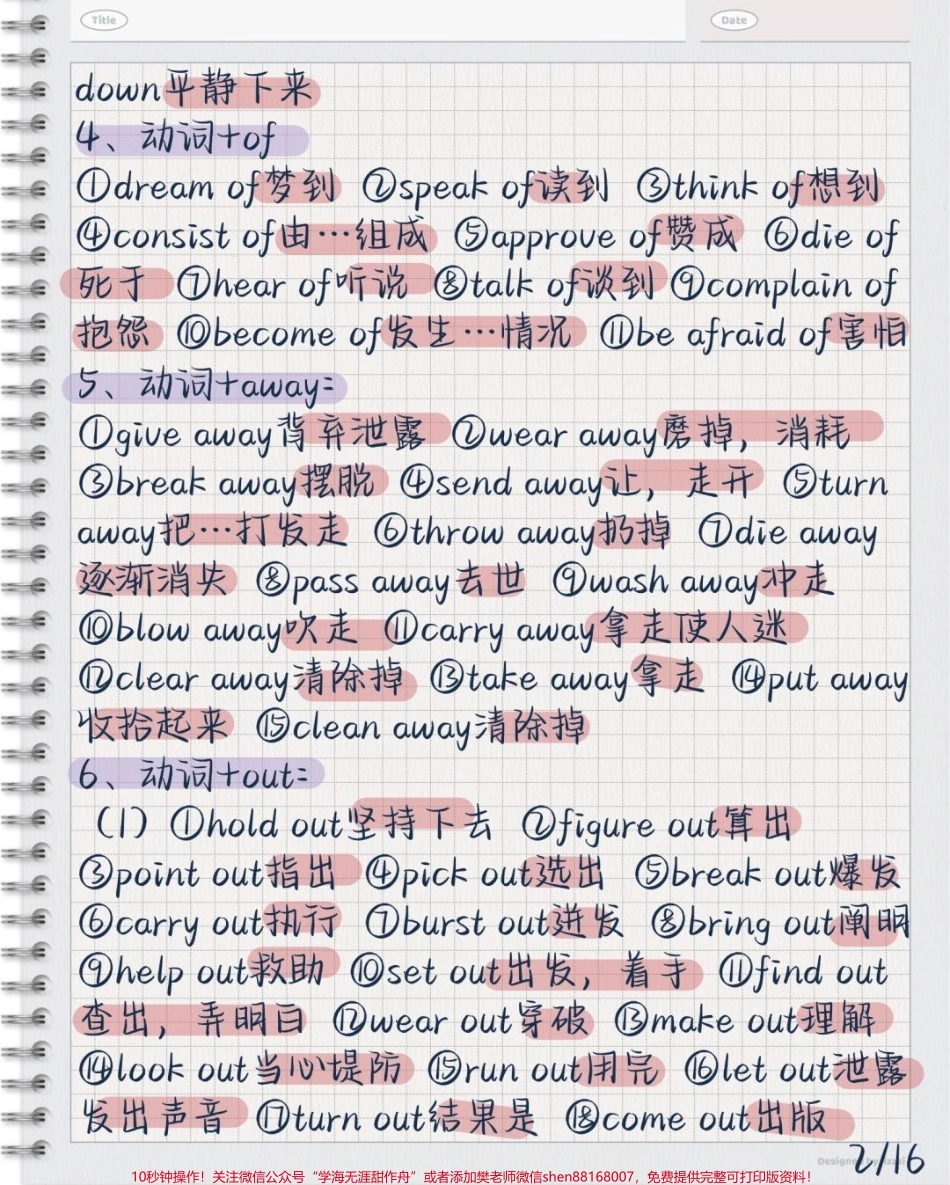 Title Date
down平静下来
4、动词+of
①dream of梦到 ②speak of读到 ③think of想到
④consist of由…组成 ⑤approve of赞成 ⑥die of
死于 ⑦hear of听说 ⑧talk of谈到 ⑨complain of
抱怨 ⑩become of发生…情况 ⑪be afraid of害怕
5、动词+away:
①give away背弃泄露 ②wear away磨掉，消耗
③break away摆脱 ④send away让，走开 ⑤turn
away把…打发走 ⑥throw away扔掉 ⑦die away
逐渐消失 ⑧pass away去世 ⑨wash away冲走
⑩blow away吹走 ⑪carry away拿走使人迷
⑫clear away清除掉 ⑬take away拿走 ⑭put away
收拾起来 ⑮clean away清除掉
6、动词+out:
（1）①hold out坚持下去 ②figure out算出
③point out指出 ④pick out选出 ⑤break out爆发
⑥carry out执行 ⑦burst out迸发 ⑧bring out阐明
⑨help out救助 ⑩set out出发，着手 ⑪find out
查出，弄明白 ⑫wear out穿破 ⑬make out理解
⑭look out当心堤防 ⑮run out用完 ⑯let out泄露
发出声音 ⑰turn out结果是 ⑱come out出版
2/16
10秒钟操作！关注微信公众号“学海无涯甜作舟”或者添加樊老师微信shen88168007，免费提供完整可打印版资料！